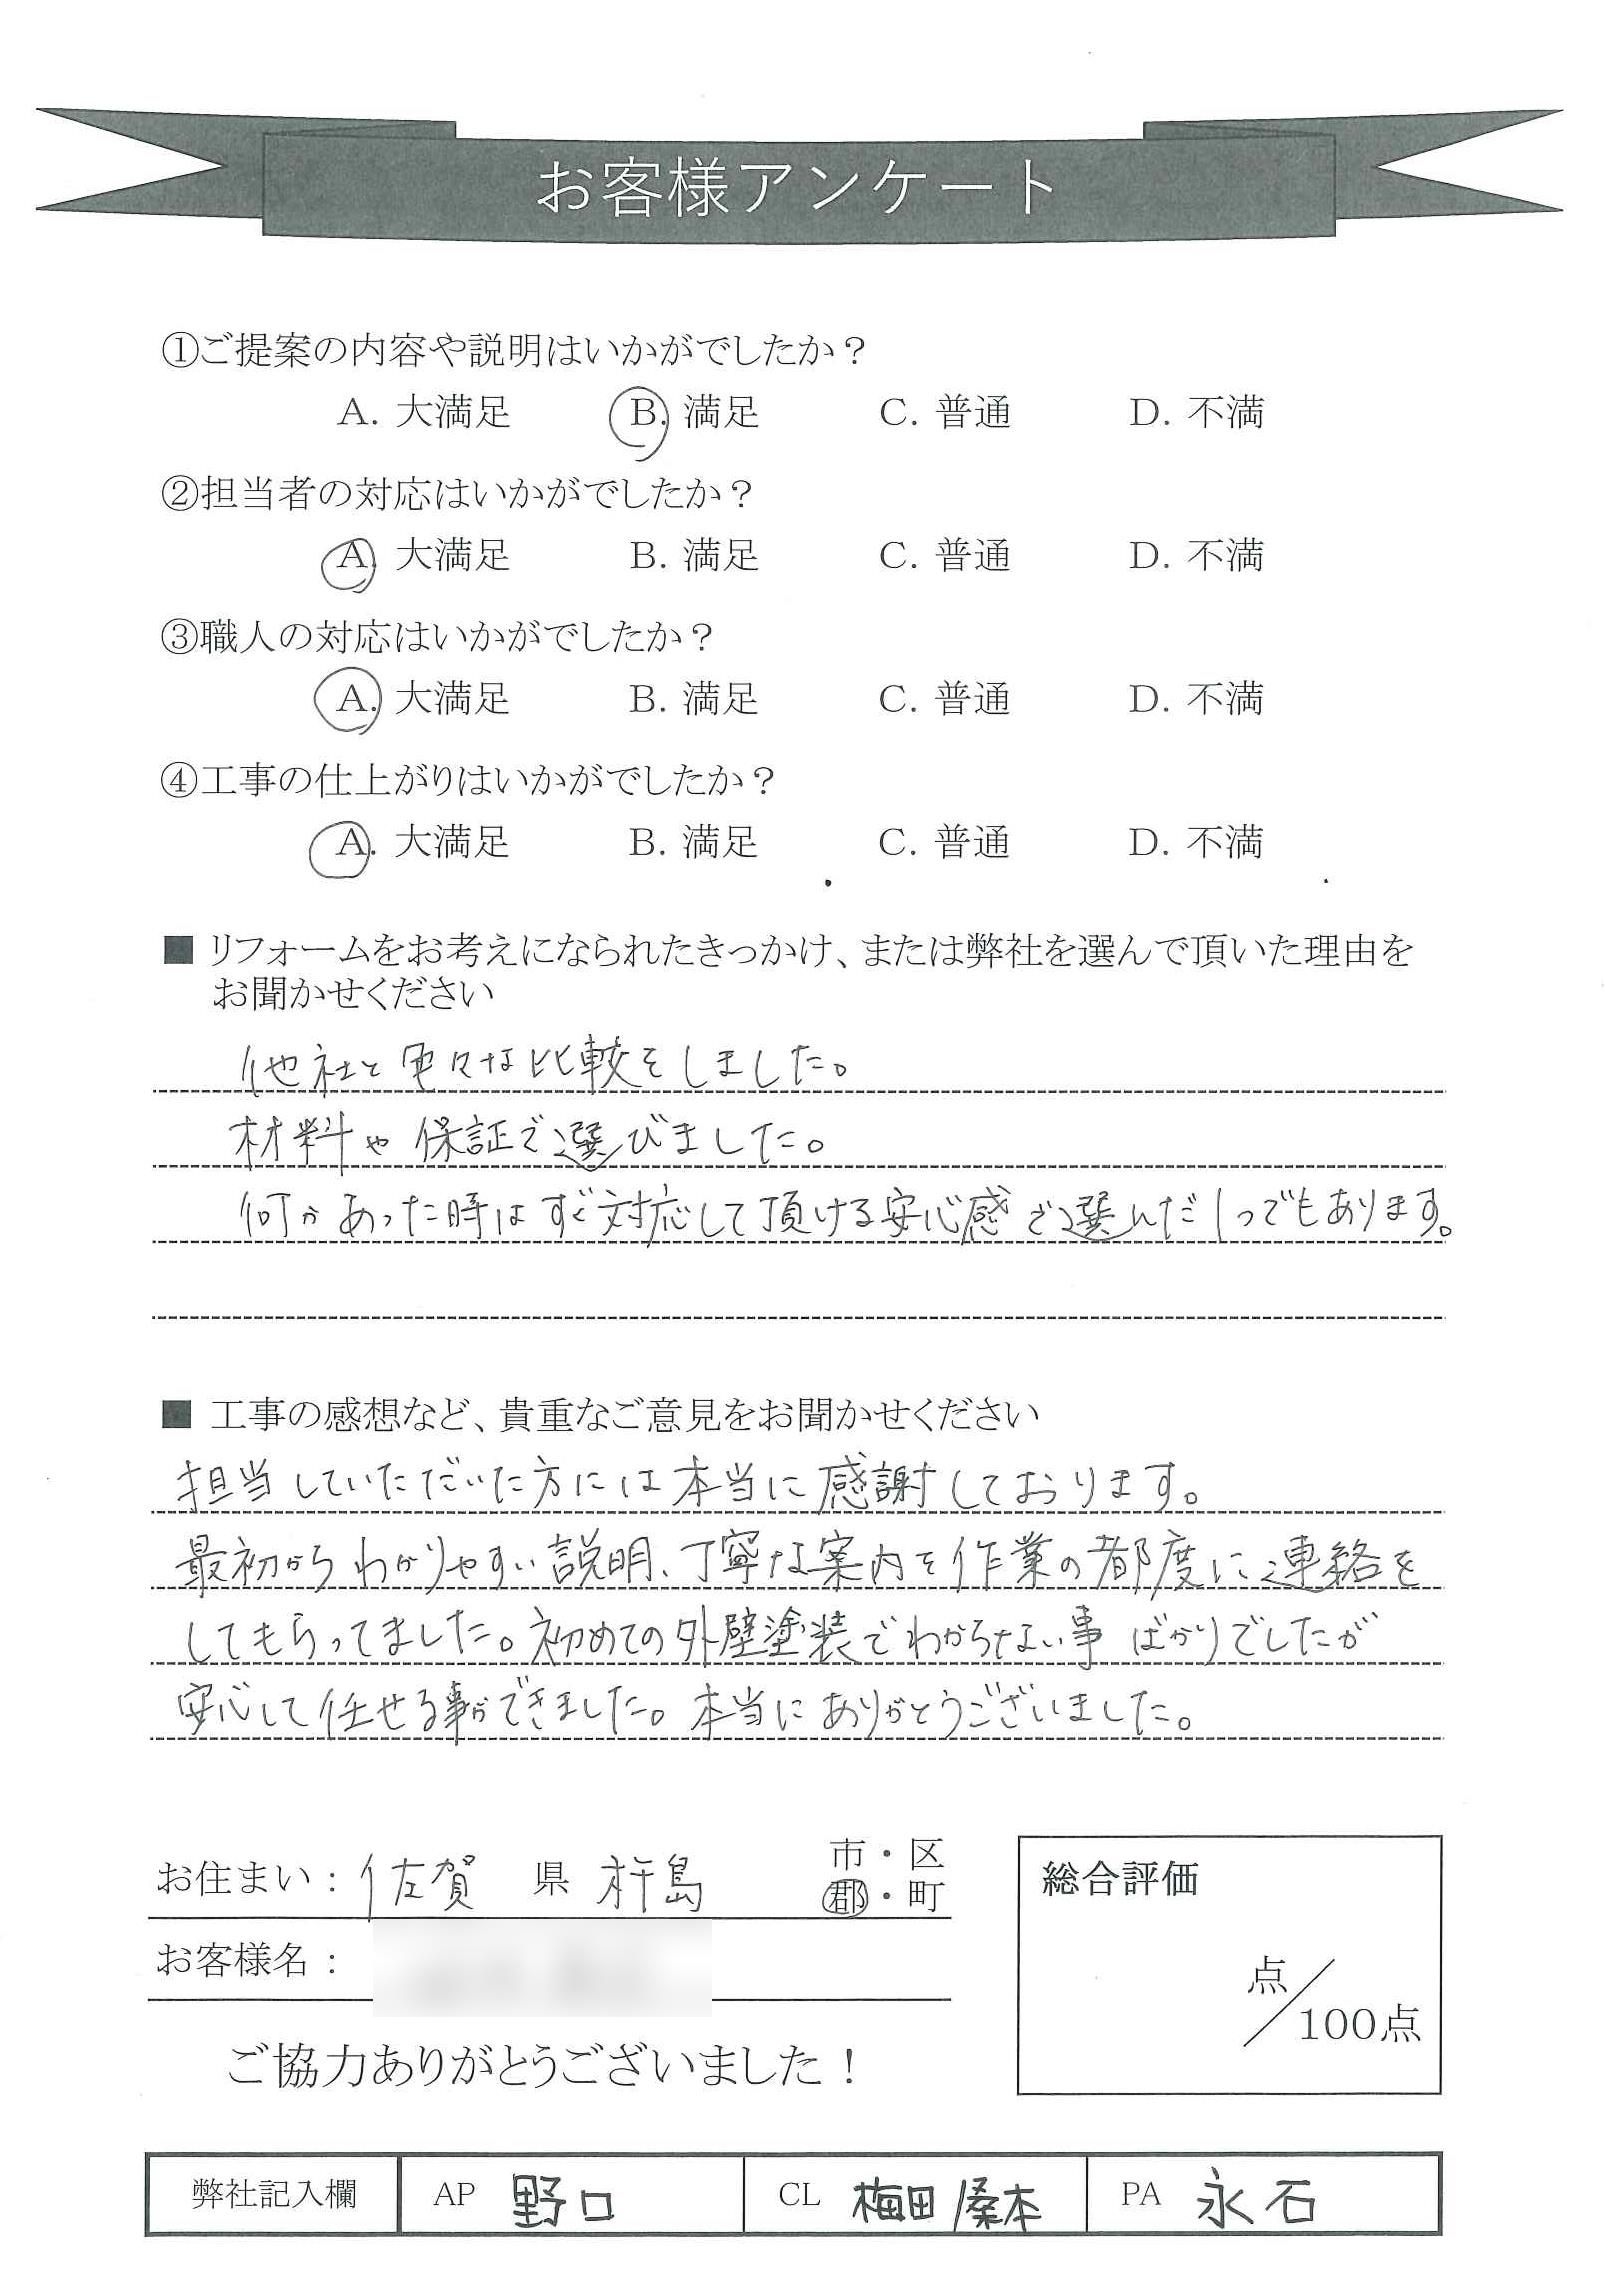 お客様アンケート
①ご提案の内容や説明はいかがでしたか？
A. 大満足 B. 満足 C. 普通 D. 不満
②担当者の対応はいかがでしたか？
A. 大満足 B. 満足 C. 普通 D. 不満
③職人の対応はいかがでしたか？
A. 大満足 B. 満足 C. 普通 D. 不満
④工事の仕上がりはいかがでしたか？
A. 大満足 B. 満足 C. 普通 D. 不満
■ リフォームをお考えになられたきっかけ、または弊社を選んで頂いた理由を
お聞かせください
他社と色々な比較をしました。
材料や保証で選びました。
何かあった時はすぐ対応して頂ける安心感で選んだ1つでもあります。
■ 工事の感想など、貴重なご意見をお聞かせください
担当していただいた方には本当に感謝しております。
最初からわかりやすい説明、丁寧な案内を作業の都度に連絡を
してもらってました。初めての外壁塗装でわからない事ばかりでしたが
安心して任せる事ができました。本当にありがとうございました。
お住まい：佐賀 県 杵島 市・区
郡・町
お客様名：
総合評価
点／100点
ご協力ありがとうございました！
弊社記入欄 AP 野口 CL 梅田/桑本 PA 永石